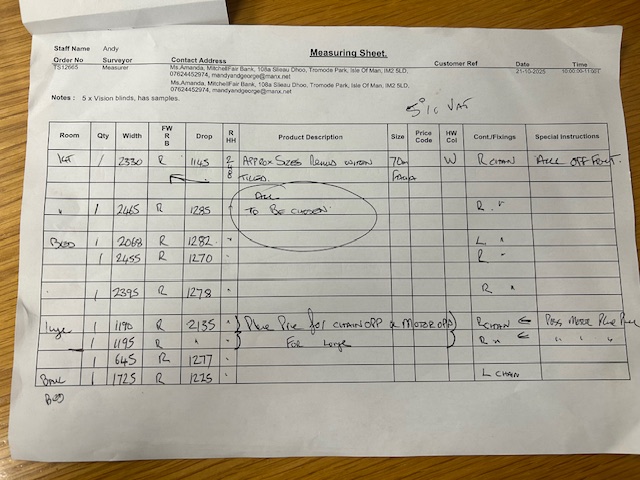 Measuring Sheet.
Staff Name Andy
Order No Surveyor Contact Address Customer Ref Date Time
TS12665 Measurer Ms.Amanda, MitchellFair Bank, 108a Slieau Dhoo, Tromode Park, Isle Of Man, IM2 5LD, 21-10-2025 10:00:00-11:00:0
07624452974, mandyandgeorge@manx.net
Ms.Amanda, MitchellFair Bank, 108a Slieau Dhoo, Tromode Park, Isle Of Man, IM2 5LD,
07624452974, mandyandgeorge@manx.net
Notes : 5 x Vision blinds, has samples.
5% VAT
Room Qty Width FW R B Drop R HH Product Description Size Price Code HW Col Cont./Fixings Special Instructions
1 2330 R 1145 2 APPROX SIZES 70m W R CHAIN ALL OFF
8 TILED.
ALL
" 1 2465 R 1285 " TO BE CHOSEN. R "
BED 1 2068 R 1282 " L "
1 2455 R 1270 " R "
" 1 2395 R 1278 " R "
1 1190 R 2135 " for CHAIN OPP & MOTOR OPP R CHAIN
1 1195 R " " FOR R " " " "
1 645 R 1277 "
1 1725 R 1225 " L CHAIN
BED